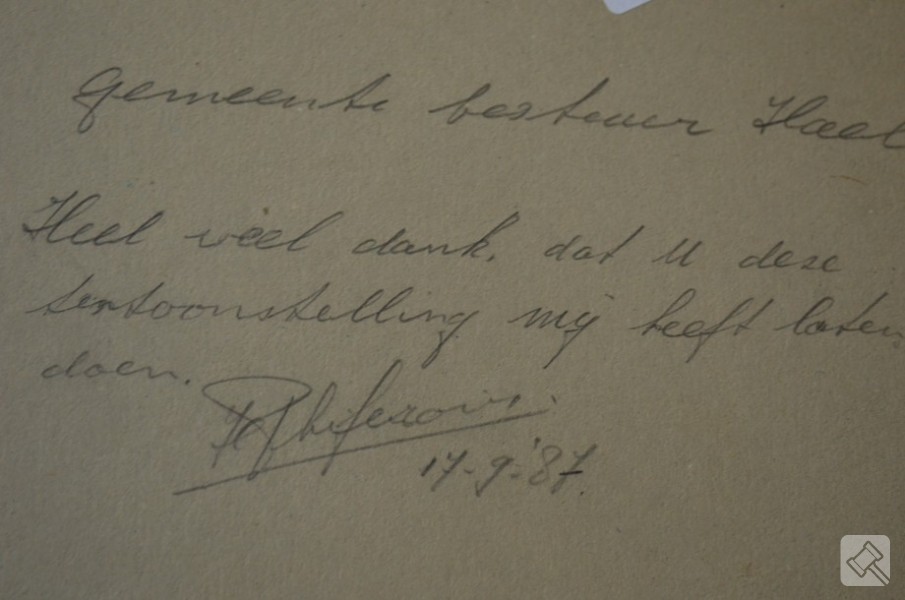 Gemeente bestuur Hael
Heel veel dank, dat U deze
tentoonstelling mij heeft laten
doen.
17-9-'87.